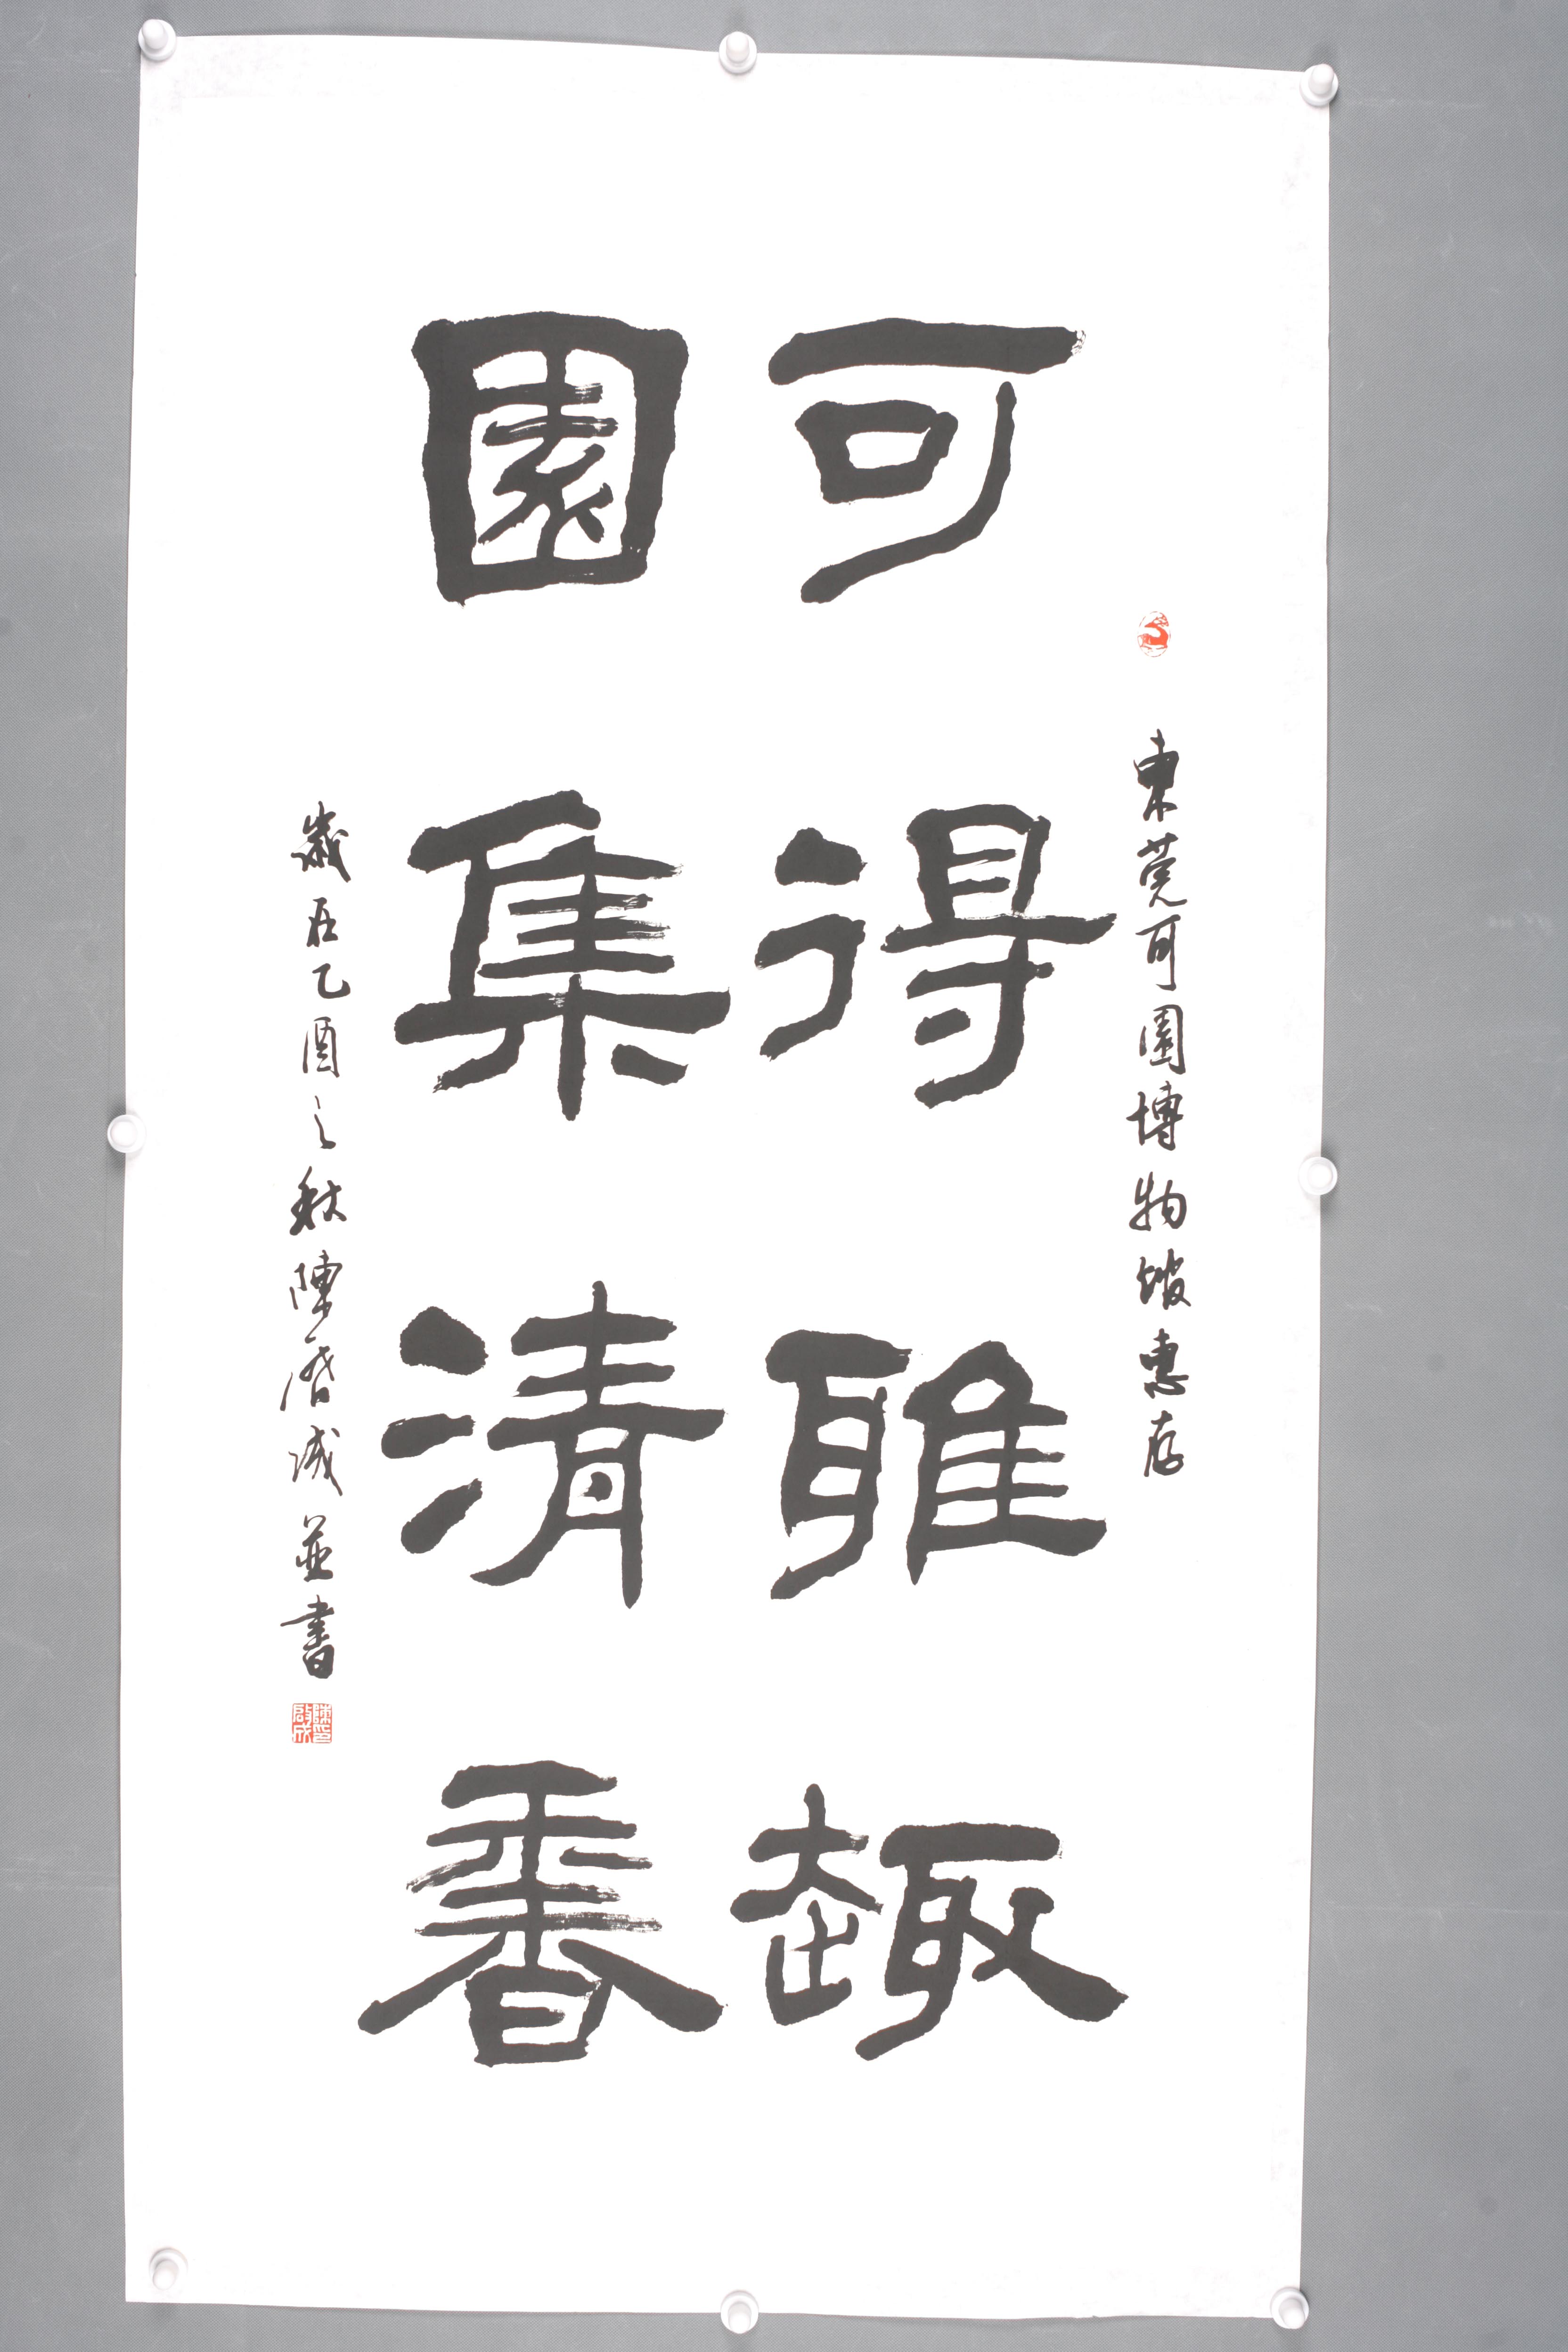 東莞可園博物館惠存
可得雅趣
園集清香
歲在乙酉之秋陳啓成並書